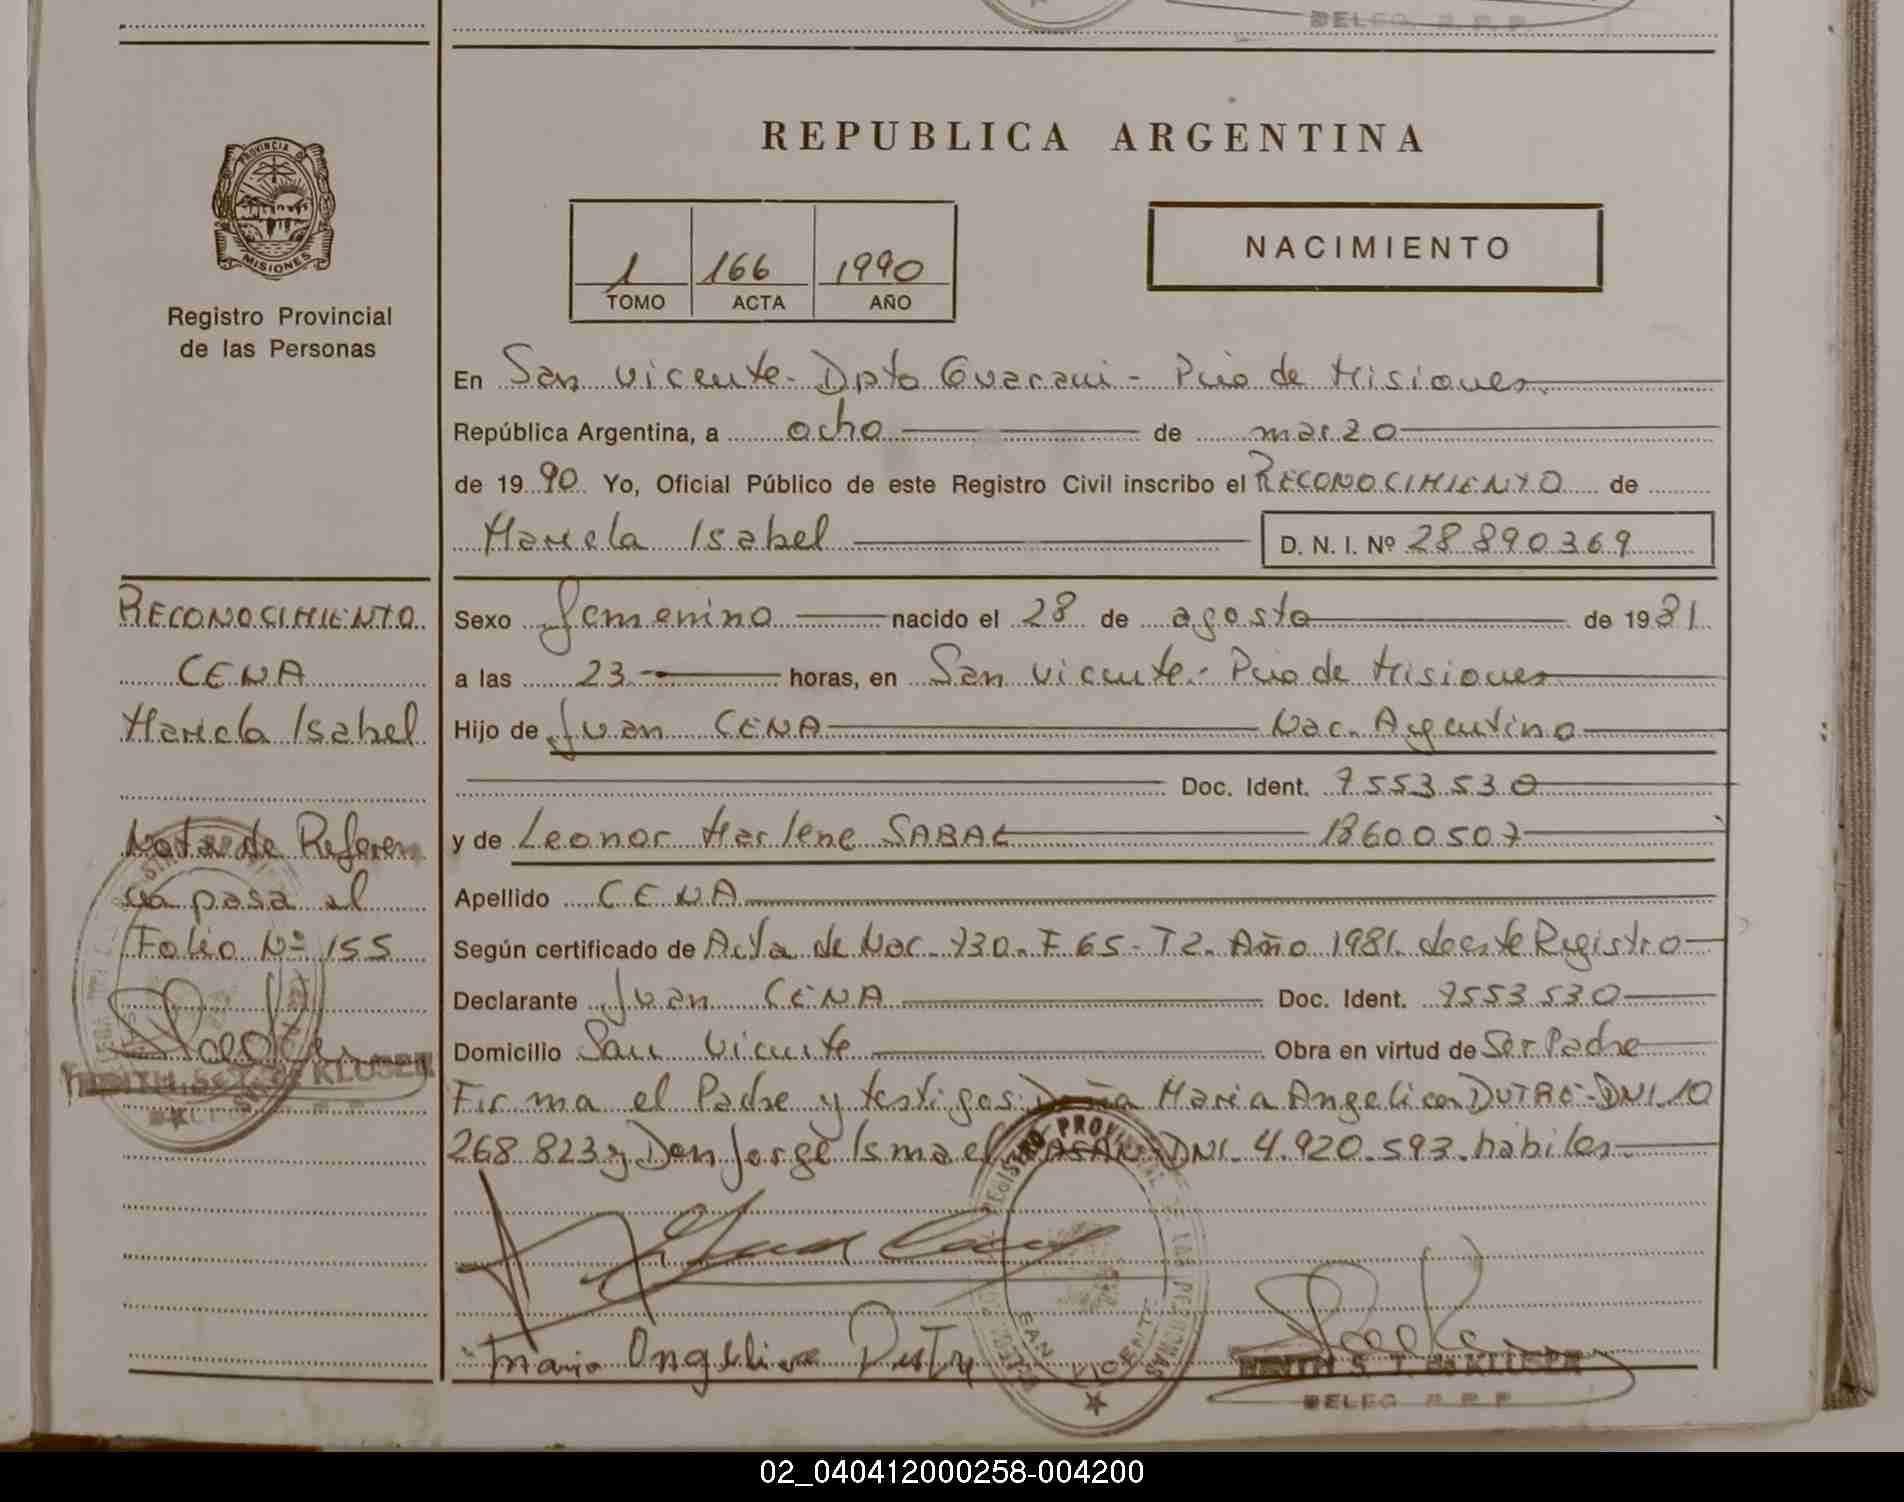 DELEG. R. P. P.
REPUBLICA ARGENTINA
PROVINCIA DE
MISIONES
Registro Provincial
de las Personas
1 166 1990
TOMO ACTA AÑO
NACIMIENTO
En San Vicente - Dpto Guarani - Pcia de Misiones
República Argentina, a ocho de marzo
de 1990 Yo, Oficial Público de este Registro Civil inscribo el RECONOCIMIENTO de
Mariela Isabel D. N. I. Nº 28890369
RECONOCIMIENTO
CENA
Mariela Isabel
Nota de Referen
cia pasa al
Folio Nº 155
Sexo femenino nacido el 28 de agosto de 1981
a las 23 horas, en San Vicente - Pcia de Misiones
Hijo de Juan CENA Nac. Argentino
Doc. Ident. 7553530
y de Leonor Marlene 18600507
Apellido CENA
Según certificado de Acta de Nac. 730. F 65. T 2. Año 1981. de este Registro
Declarante Juan CENA Doc. Ident. 7553530
Domicilio San Vicente Obra en virtud de Ser Padre
Firma el Padre y testigos: Doña Maria Angelica DUTRE - DNI. 10
268.823 y Don Jorge Ismael DNI. 4.920.593. habiles
REGISTRO PROVINCIAL DE LAS PERSONAS
SAN VICENTE
Maria Angelica
EDITH S. T. de KLUSER
DELEG. R. P. P.
02_040412000258-004200